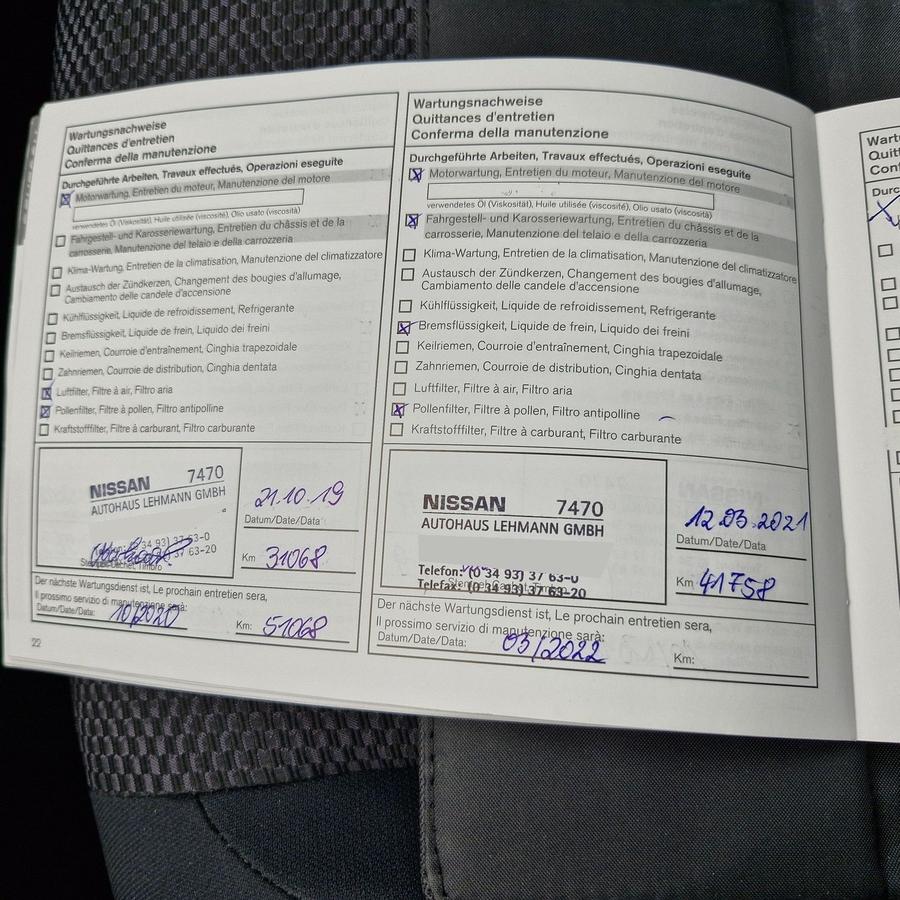 Wartungsnachweise
Quittances d'entretien
Conferma della manutenzione
Durchgeführte Arbeiten, Travaux effectués, Operazioni eseguite
Motorwartung, Entretien du moteur, Manutenzione del motore
verwendetes Öl (Viskosität), Huile utilisée (viscosité), Olio usato (viscosità)
Fahrgestell- und Karosseriewartung, Entretien du châssis et de la
carrosserie, Manutenzione del telaio e della carrozzeria
Klima-Wartung, Entretien de la climatisation, Manutenzione del climatizzatore
Austausch der Zündkerzen, Changement des bougies d'allumage,
Cambiamento delle candele d'accensione
Kühlflüssigkeit, Liquide de refroidissement, Refrigerante
Bremsflüssigkeit, Liquide de frein, Liquido dei freini
Keilriemen, Courroie d'entraînement, Cinghia trapezoidale
Zahnriemen, Courroie de distribution, Cinghia dentata
Luftfilter, Filtre à air, Filtro aria
Pollenfilter, Filtre à pollen, Filtro antipolline
Kraftstofffilter, Filtre à carburant, Filtro carburante
NISSAN 7470
AUTOHAUS LEHMANN GMBH
34 93) 37 63-0
37 63-20
21.10.19
Datum/Date/Data
Km 31068
Der nächste Wartungsdienst ist, Le prochain entretien sera,
Il prossimo servizio di manutenzione sarà:
Datum/Date/Data: 10/2020 Km: 51068
22
Wartungsnachweise
Quittances d'entretien
Conferma della manutenzione
Durchgeführte Arbeiten, Travaux effectués, Operazioni eseguite
Motorwartung, Entretien du moteur, Manutenzione del motore
verwendetes Öl (Viskosität), Huile utilisée (viscosité), Olio usato (viscosità)
Fahrgestell- und Karosseriewartung, Entretien du châssis et de la
carrosserie, Manutenzione del telaio e della carrozzeria
Klima-Wartung, Entretien de la climatisation, Manutenzione del climatizzatore
Austausch der Zündkerzen, Changement des bougies d'allumage,
Cambiamento delle candele d'accensione
Kühlflüssigkeit, Liquide de refroidissement, Refrigerante
Bremsflüssigkeit, Liquide de frein, Liquido dei freini
Keilriemen, Courroie d'entraînement, Cinghia trapezoidale
Zahnriemen, Courroie de distribution, Cinghia dentata
Luftfilter, Filtre à air, Filtro aria
Pollenfilter, Filtre à pollen, Filtro antipolline
Kraftstofffilter, Filtre à carburant, Filtro carburante
NISSAN 7470
AUTOHAUS LEHMANN GMBH
Telefon: (0 34 93) 37 63-0
Telefax: (0 34 93) 37 63-20
12.03.2021
Datum/Date/Data
Km 41758
Der nächste Wartungsdienst ist, Le prochain entretien sera,
Il prossimo servizio di manutenzione sarà:
Datum/Date/Data: 03/2022 Km: